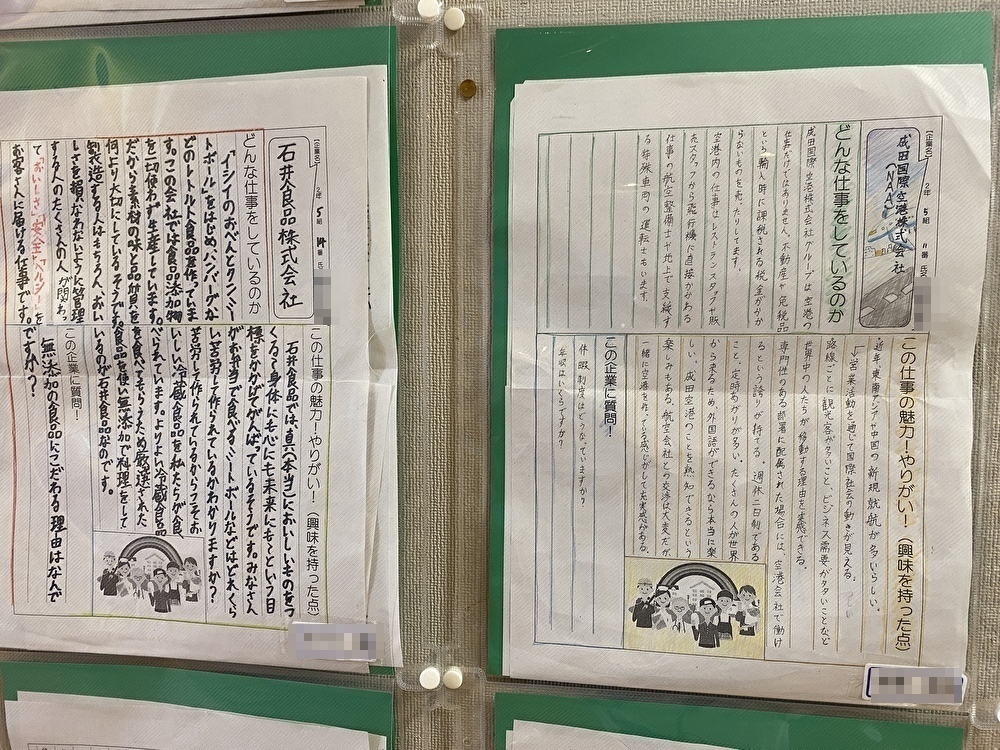 【企業名】 2年 5組 11番 氏名
成田国際空港株式会社
(NAA)
どんな仕事をしているのか
成田国際空港株式会社グループは空港の
仕事だけではありません。不動産や免税品
という輸入時に課税される税金がかか
らないものを売ったりしてます。
空港内の仕事はレストランスタッフや販
売スタッフから飛行機に直接かかわる
仕事の航空整備士や地上で支援す
る特殊車両の運転士もいます。
この仕事の魅力!やりがい!(興味を持った点)
近年、東南アジアや中国の新規就航が多いらしい。
↳営業活動を通じて国際社会の動きが見える。
路線ごとに観光客が多いこと、ビジネス需要が多いことなど
世界中の人たちが移動する理由を実感できる。
専門性のある部署に配属された場合には、空港会社で働け
るという誇りが持てる。週休二日制である
こと、定時あがりが多い、たくさんの人が世界
から来るため、外国語ができるなら本当に楽
しい。成田空港のことを熟知できるという
楽しみもある。航空会社との交渉は大変だが
一緒に空港を作っている感じがして充実感がある。
この企業に質問!
休暇制度はどうなっていますか?
年収はいくらですか?
【企業名】 2年 5組 14番 氏
石井食品株式会社
どんな仕事をしているのか
「イシイのおべんとクン ミー
トボール」をはじめ、ハンバーグな
どのレトルト食品を作っていま
す。この会社では食品添加物
を一切使わず生産しています。
だから素材の味と品質を
何より大切にしているそうです。
製造する人はもちろん、おい
しさを損なわないように管理
する人のたくさんの人が関わっ
て「おいしさ」「安全」「ヘルシー」を
お客さんに届ける仕事です。
この仕事の魅力!やりがい!(興味を持った点)
石井食品では、真(本当)においしいものをつ
くる〜身体にも心にも未来にも〜という目
標をかかげてがんばっているそうです。みなさん
がお弁当で食べるミートボールなどはどれくら
い苦労して作られているかわかりますか?
苦労して作られているからこそお
いしい冷蔵食品を私たちが食
べられています。よりよい冷蔵食品
を食べてもらうため厳選された
食品を使い無添加で料理をして
いるのが石井食品なのです。
この企業に質問!
無添加の食品にこだわる理由はなんで
ですか?